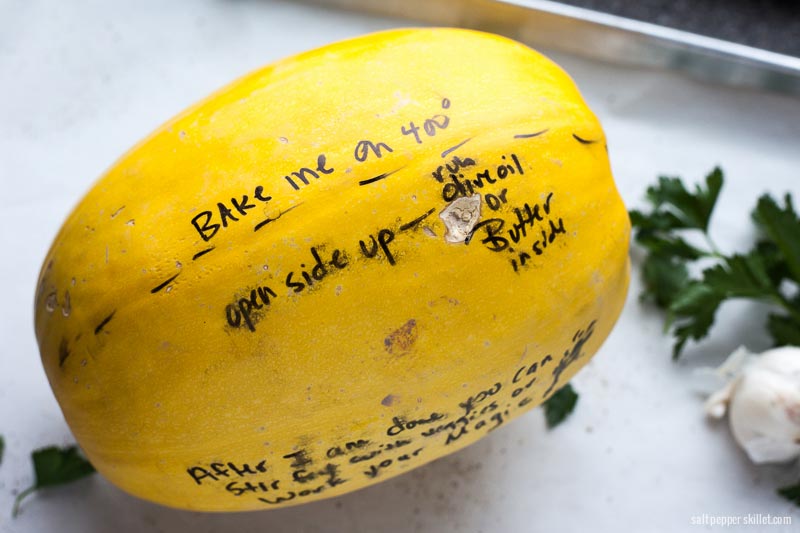 BAKE me on 400°
rub
Olive oil
or
Butter
inside
open side up
After I am done you can
Stir Fry with veggies or
Work your Magic
saltpepperskillet.com